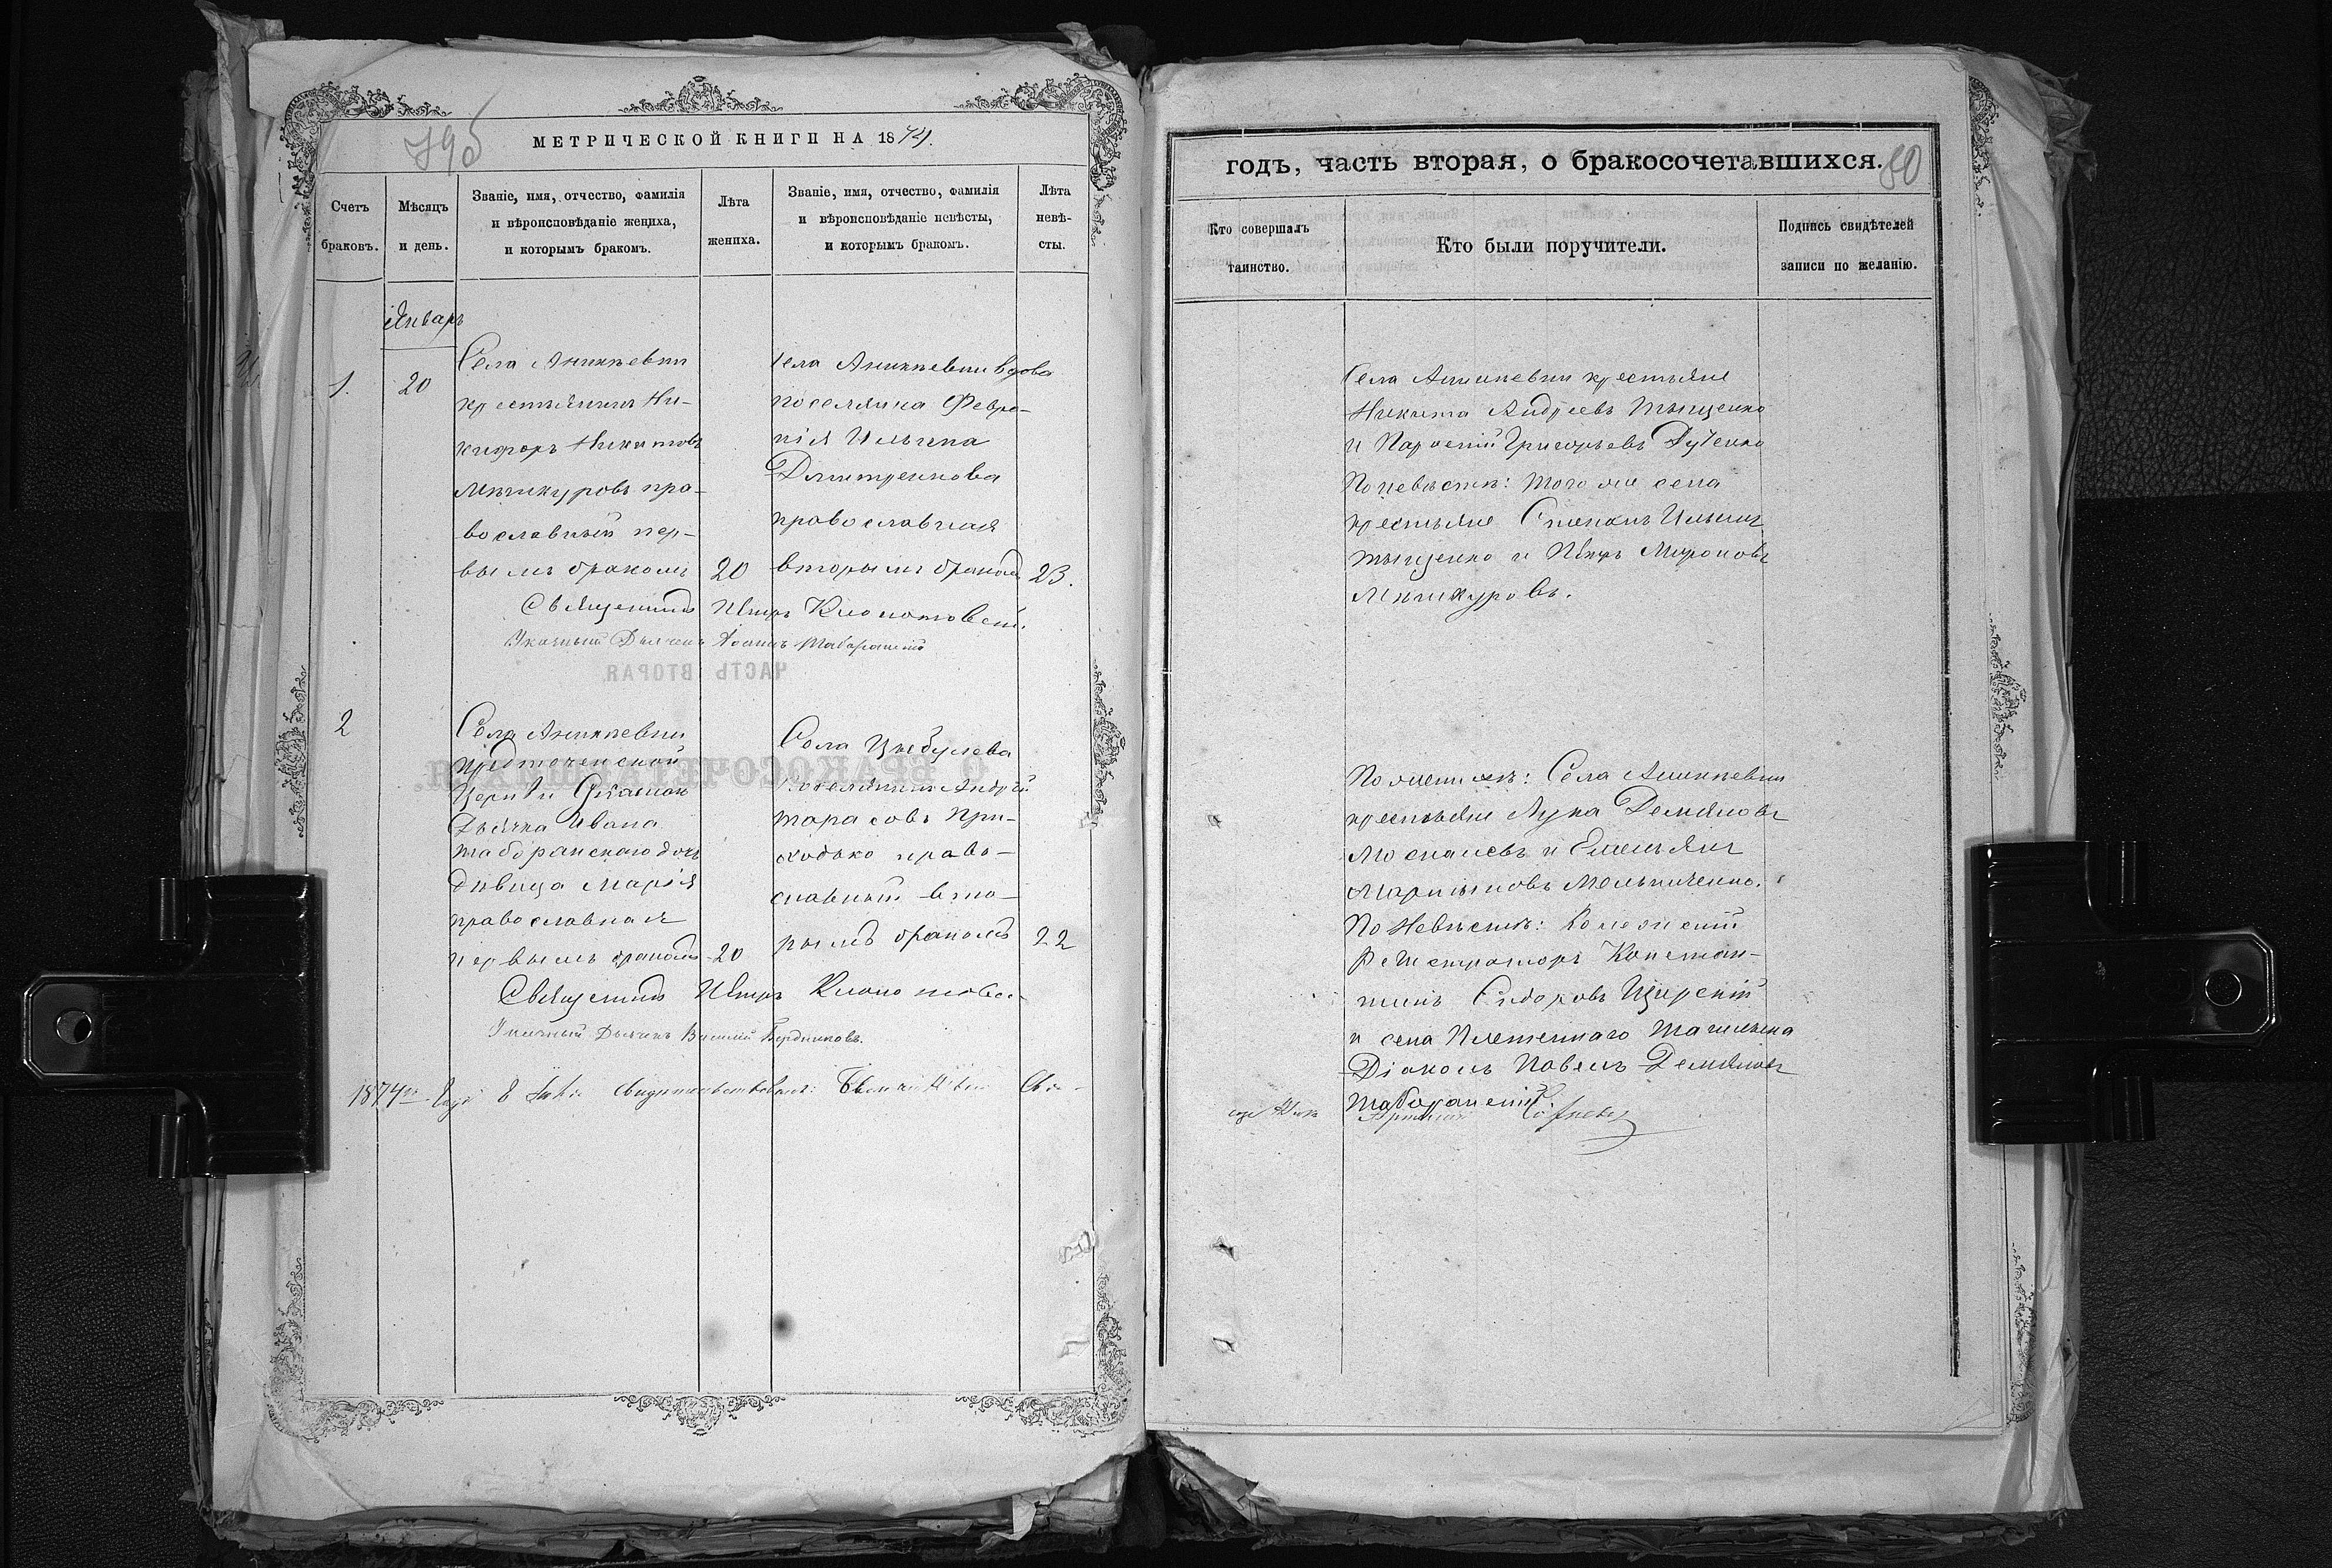 79б
МЕТРИЧЕСКОЙ КНИГИ НА 1874.
Счетъ браковъ.
Мѣсяцъ и день.
Званіе, имя, отчество, фамилія
и вѣроисповѣданіе жениха,
и которымъ бракомъ.
Лѣта жениха.
Званіе, имя, отчество, фамилія
и вѣроисповѣданіе невѣсты,
и которымъ бракомъ.
Лѣта невѣ-
сты.
Январь
1.
20
Села Аникѣевки
крестьянинъ Ни-
кифоръ Никитовъ
Мѣшкуровъ пра-
вославный пер-
вымъ бракомъ
20
Села Аникѣевки вдова
поселянка Февро-
нія Ильина
Дмитренкова
православная
вторымъ бракомъ
23.
Священникъ Петръ
Указный Дьячекъ Іоаннъ Таборанскій
ЧАСТЬ ВТОРАЯ
О БРАКОСОЧЕТАВШИХСЯ.
2
Села Аникѣевки
Предтеченской
Церкви
Дьячка Ивана
Таборанскаго дочь
дѣвица Марія
православная
первымъ бракомъ
20
Села Цыбулева
поселянинъ Андрей
Тарасовъ При-
ходько право-
славный вто-
рымъ бракомъ
22
Священникъ Петръ
Указный Дьячекъ Василій Бердниковъ.
1874 года 8 свидѣтельствовалъ:
годъ, часть вторая, о бракосочетавшихся.
80
Кто совершалъ
таинство.
Кто были поручители.
Подпись свидѣтелей
записи по желанію.
Села Аникѣевки крестьяне
Никита Андреевъ Тыщенко
и Григорьевъ Дученко
По невѣстѣ: того же села
крестьяне Степанъ Ильинъ
Тыщенко и Петръ Мироновъ
Мѣшкуровъ.
По женихѣ: Села Аникѣевки
крестьяне Лука Демьяновъ
Москалевъ и Емельянъ
Мартыновъ Мельниченко.
По Невѣстѣ: Колежскій
Регистраторъ Констан-
тинъ Сидоровъ Щирскій
и села Плетеннаго Ташлыка
Діаконъ Павелъ Демьяновъ
Таборанскій.